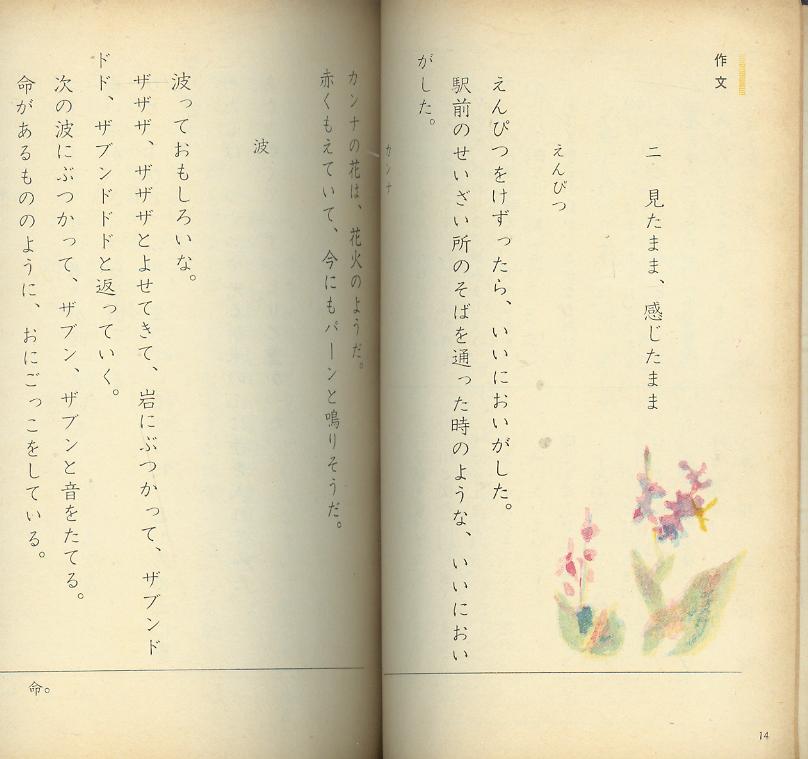 作文
二　見たまま、感じたまま
えんぴつ
えんぴつをけずったら、いいにおいがした。
駅前のせいざい所のそばを通った時のような、いいにおい
がした。
14
カンナ
カンナの花は、花火のようだ。
赤くもえていて、今にもパーンと鳴りそうだ。
波
波っておもしろいな。
ザザザ、ザザザとよせてきて、岩にぶつかって、ザブンド
ドド、ザブンドドドと返っていく。
次の波にぶつかって、ザブン、ザブンと音をたてる。
命があるもののように、おにごっこをしている。
命。